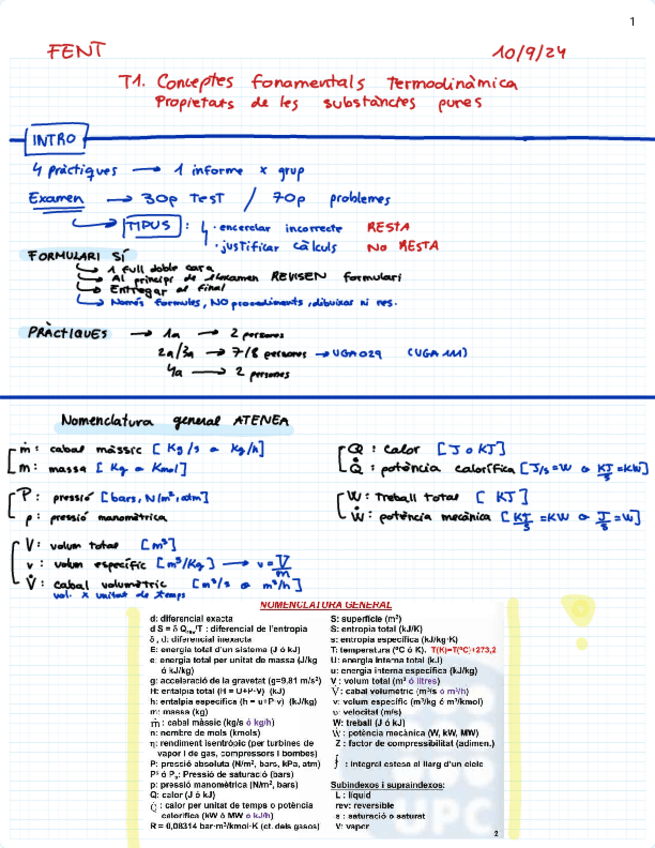 1
FENT 10/9/24
T1. Conceptes fonamentals Termodinàmica
Propietats de les substàncies pures
INTRO
4 pràctiques → 1 informe x grup
Examen → 30p Test / 70p problemes
TIPUS : · encerclar incorrecte RESTA
· justificar càlculs NO RESTA
FORMULARI SÍ
→ 1 full doble cara
→ Al principi de l'examen REVISEN formulari
→ Entregar al final
→ Només formules, NO procediments, dibuixar ni res.
PRÀCTIQUES → 1a → 2 persones
2a/3a → 7/8 persones → UGA 029 (UGA 111)
4a → 2 persones
Nomenclatura general ATENEA
ṁ: cabal màssic [Kg/s o Kg/h]
m: massa [Kg o Kmol]
P: pressió [bars, N/m², atm]
p: pressió manomètrica
V: volum total [m³]
v: volum específic [m³/Kg] → v = V/m
V̇: cabal volumètric [m³/s o m³/h]
vol. x unitat de temps
Q: calor [J o KJ]
Q̇: potència calorífica [J/s=W o KJ/s=KW]
W: Treball total [KJ]
Ẇ: potència mecànica [KJ/s =KW o J/s =W]
NOMENCLATURA GENERAL
d: diferencial exacta
d S = δ Qrev/T : diferencial de l'entropia
δ , d: diferencial inexacta
E: energia total d'un sistema (J ó kJ)
e: energia total per unitat de massa (J/kg
ó kJ/kg)
g: acceleració de la gravetat (g=9.81 m/s²)
H: entalpia total (H = U+P·V) (kJ)
h: entalpia específica (h = u+P·v) (kJ/kg)
m: massa (kg)
ṁ : cabal màssic (kg/s ó kg/h)
n: nombre de mols (kmols)
η: rendiment isentròpic (per turbines de
vapor i de gas, compressors i bombes)
P: pressió absoluta (N/m², bars, kPa, atm)
P⁰ ó Pₛ: Pressió de saturació (bars)
p: pressió manomètrica (N/m², bars)
Q: calor (J ó kJ)
Q̇ : calor per unitat de temps o potència
calorífica (kW ó MW o kJ/h)
R = 0,08314 bar·m³/kmol·K (ct. dels gasos)
S: superfície (m²)
S: entropia total (kJ/K)
s: entropia específica (kJ/kg·K)
T: temperatura (ºC ó K). T(K)=T(ºC)+273,2
U: energia interna total (kJ)
u: energia interna específica (kJ/kg)
V : volum total (m³ ó litres)
V̇ : cabal volumètric (m³/s ó m³/h)
v: volum específic (m³/kg ó m³/kmol)
υ: velocitat (m/s)
W: treball (J ó kJ)
Ẇ : potència mecànica (W, kW, MW)
Z : factor de compressibilitat (adimen.)
∮ : integral estesa al llarg d'un cicle
Subíndexos i supraíndexos:
L : líquid
rev: reversible
s : saturació o saturat
V: vapor
UPC
2